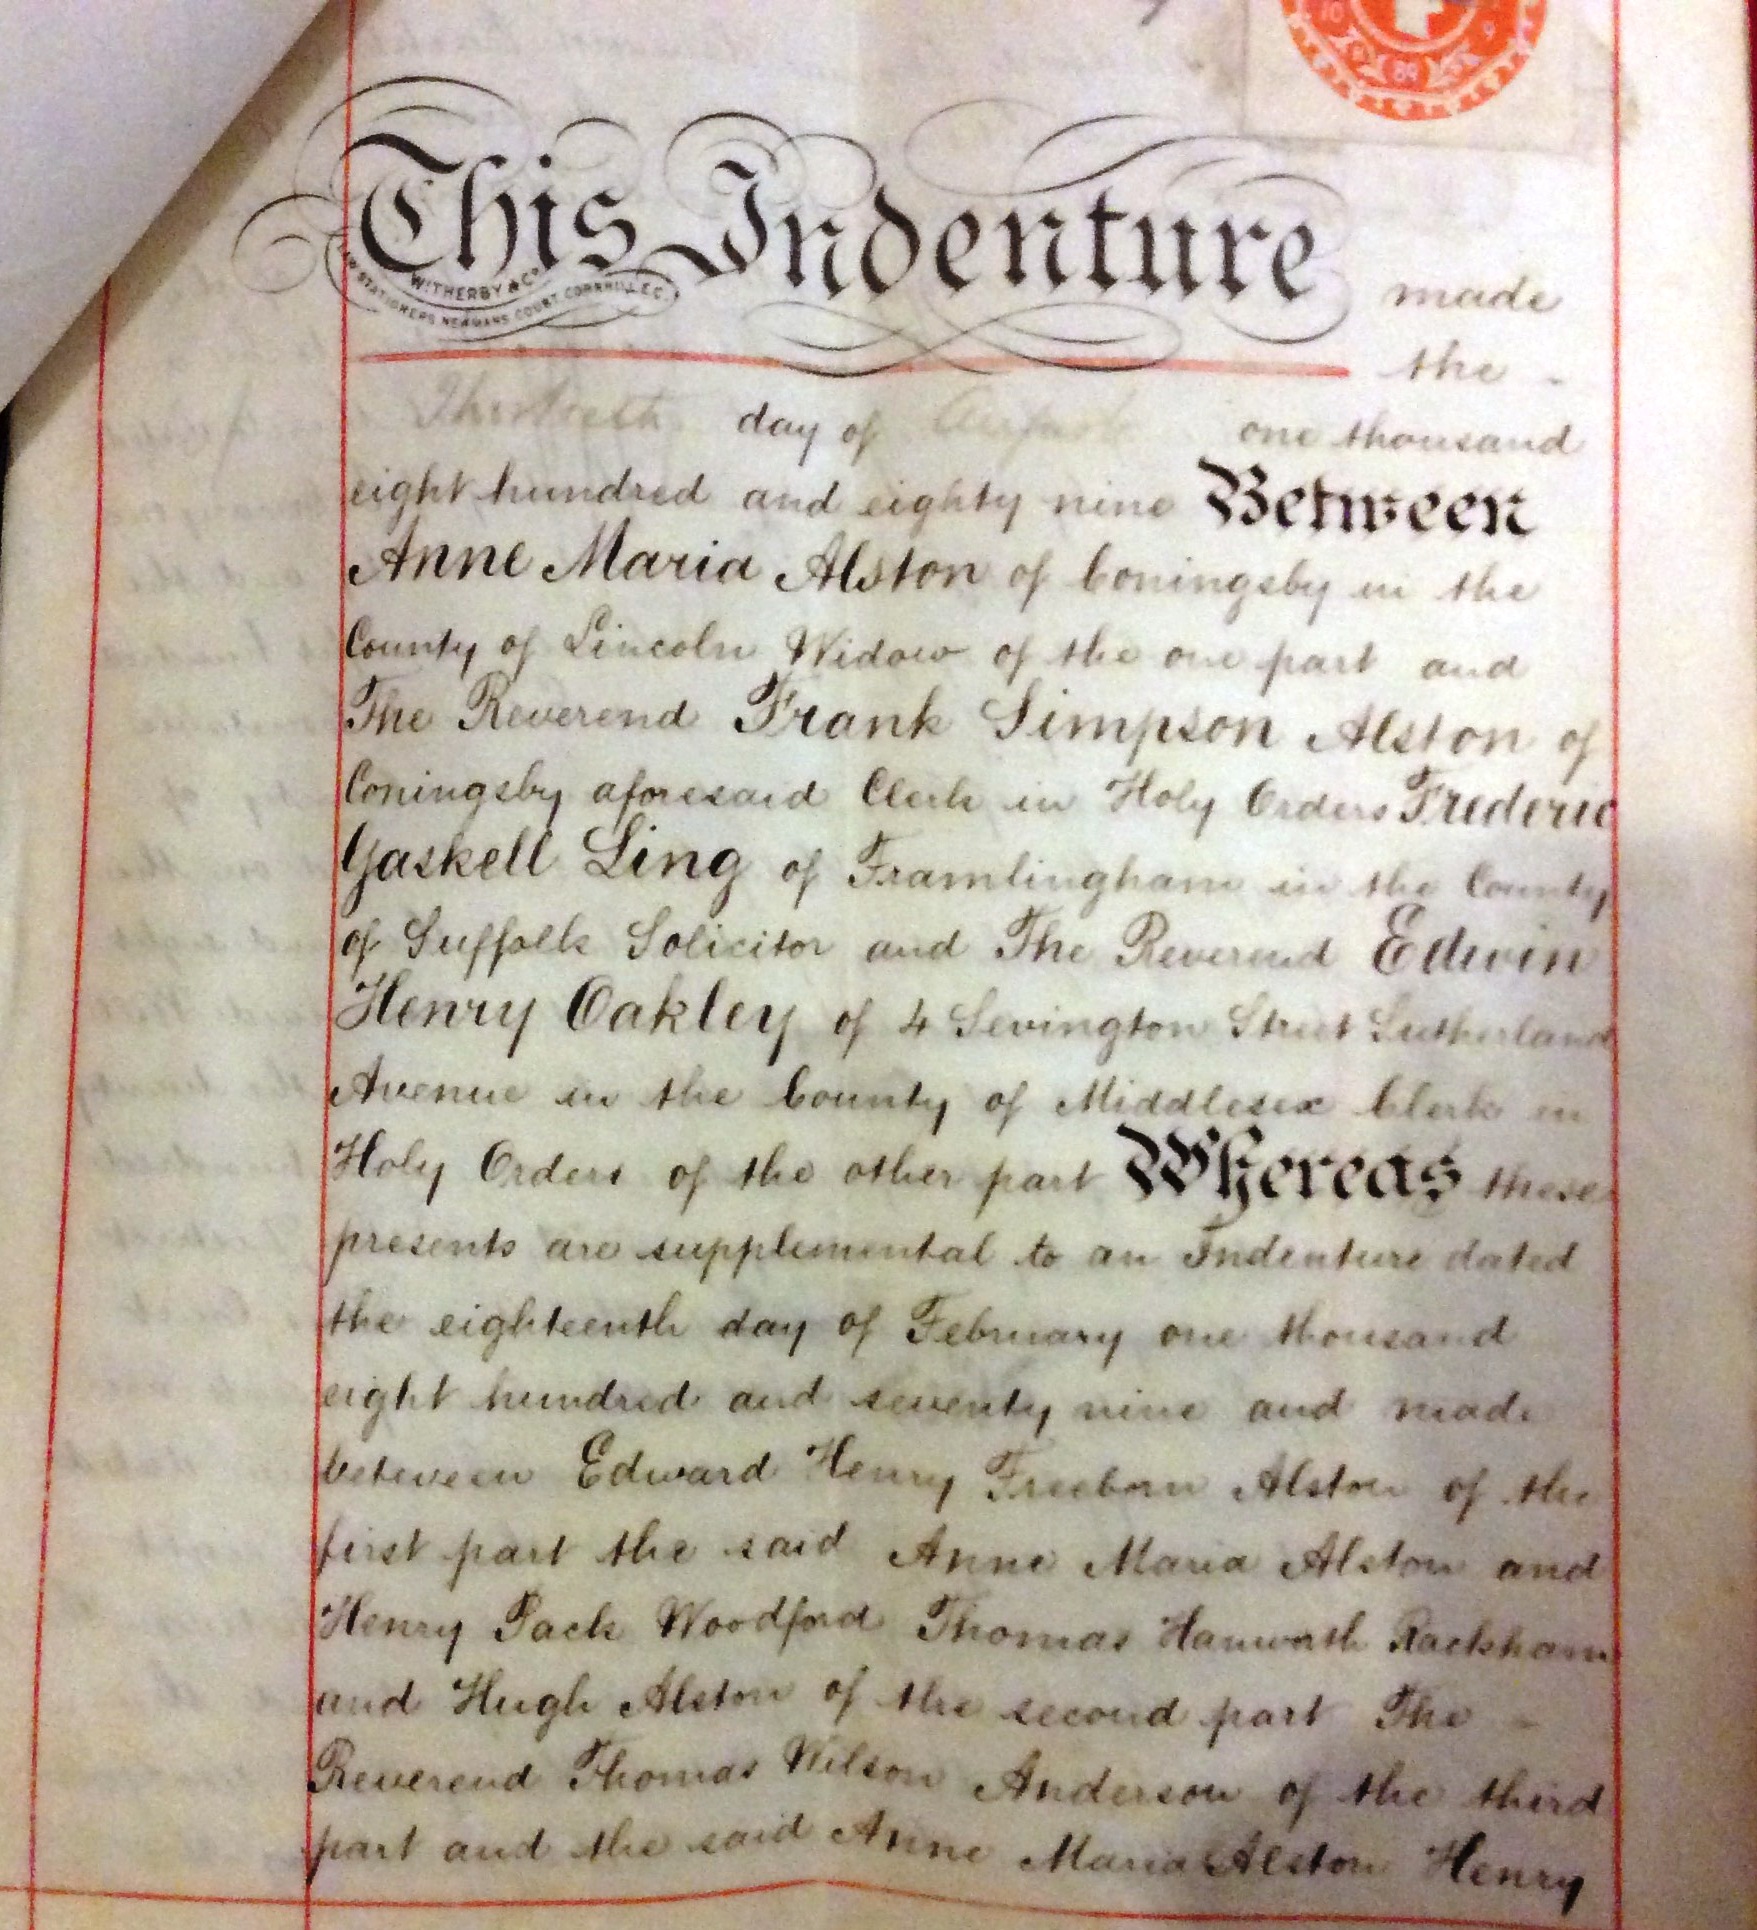 This Indenture made
WITHERBY & Co
STATIONERS NEWMANS COURT CORNHILL E.C.
the -
Thirtieth day of August one thousand
eight hundred and eighty nine Between
Anne Maria Alston of Coningsby in the
County of Lincoln Widow of the one part and
The Reverend Frank Simpson Alston of
Coningsby aforesaid Clerk in Holy Orders Frederic
Gaskell Ling of Framlingham in the County
of Suffolk Solicitor and The Reverend Edwin
Henry Oakley of 4 Sevington Street Sutherland
Avenue in the County of Middlesex Clerk in
Holy Orders of the other part Whereas these
presents are supplemental to an Indenture dated
the eighteenth day of February one thousand
eight hundred and seventy nine and made
between Edward Henry Freeborn Alston of the
first part the said Anne Maria Alston and
Henry Pack Woodford Thomas Hanworth Rackham
and Hugh Alston of the second part The -
Reverend Thomas Wilson Anderson of the third
part and the said Anne Maria Alston Henry